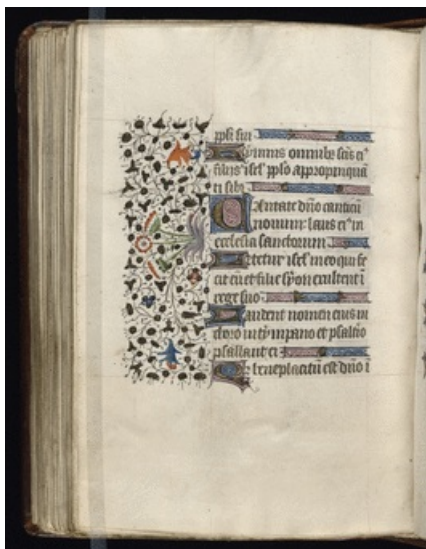 ppli sui
Ymnus omnibꝫ scīs eiꝰ
filiis isrl pplo appropinquā
ti sibi
Cantate dño canticū
novum: laus eiꝰ in
ecclesia sanctorum
Letetur isrl in eo qui fe
cit eū et filie syon exultent ī
rege suo
Laudent nomen eius in
choro in tympano et psaltio
psallant ei
Qr bñeplacitū est dño ī